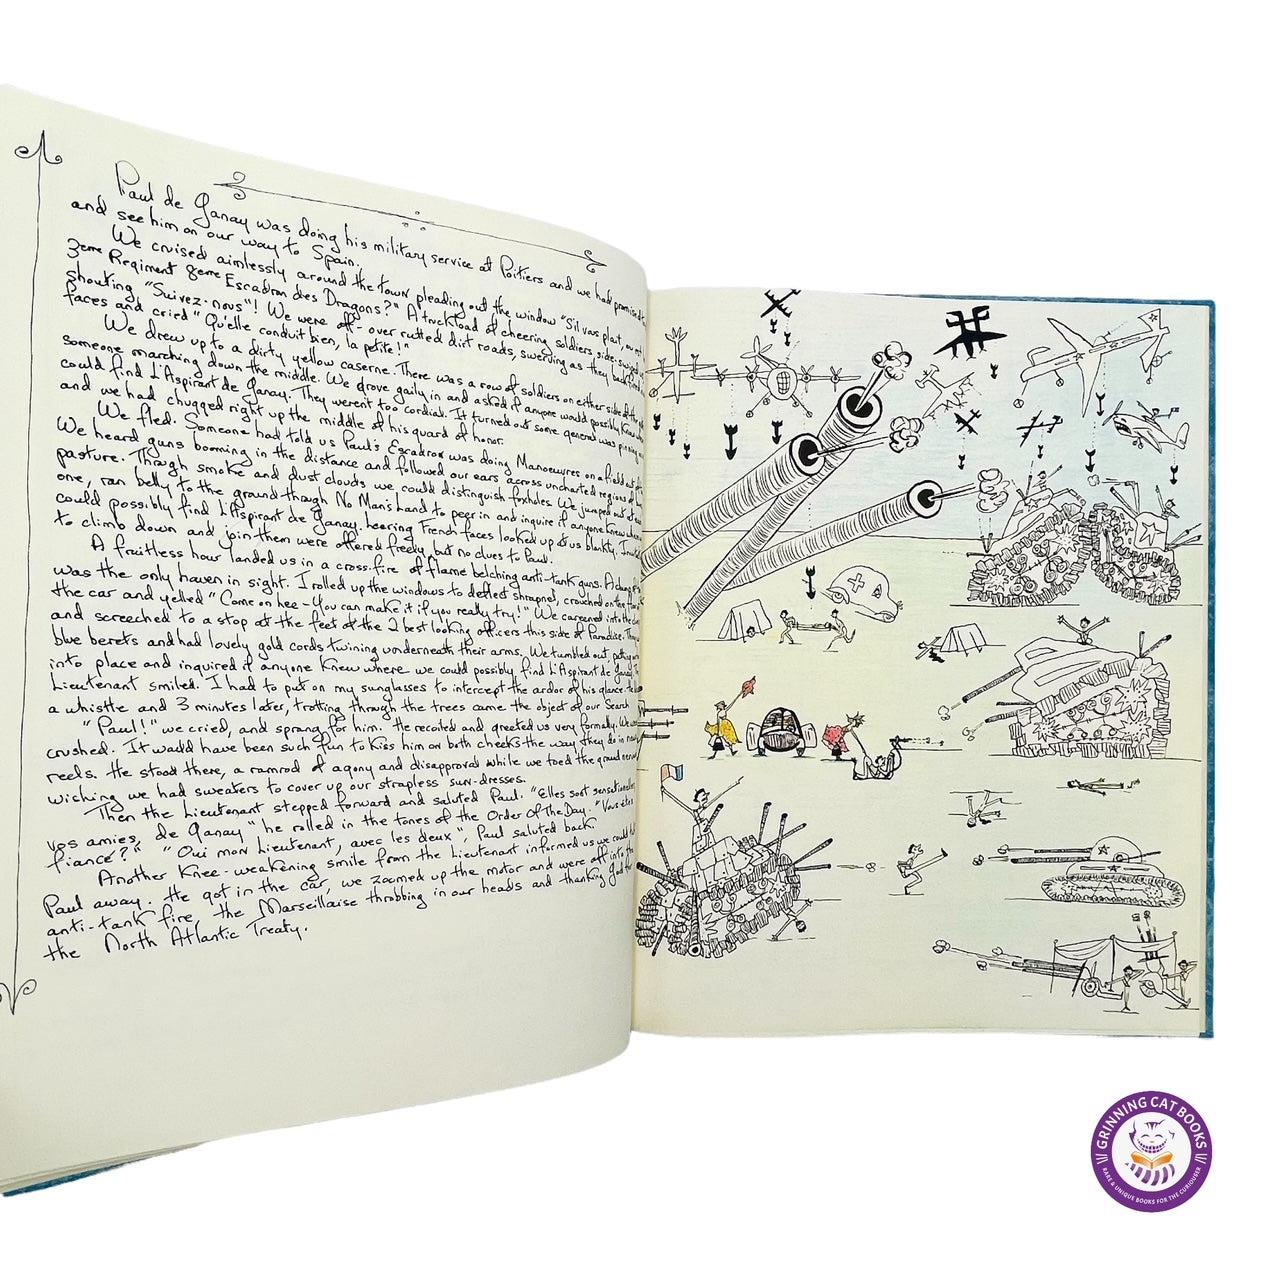 Paul de Ganay was doing his military service at Poitiers and we had promised
and see him on our way to Spain.
We cruised aimlessly around the town pleading out the window "S'il vous plait, ou est
3eme Regiment 8eme Escadron des Dragons?" A truckload of cheering soldiers, side-swiped
shouting "Suivez-nous"! We were off - over rutted dirt roads, swerving as they
faces and cried "Qu'elle conduit bien, la petite!"
We drew up to a dirty yellow caserne. There was a row of soldiers on either side of the
someone marching down the middle. We drove gaily in and asked if anyone would possibly Know
could find L'Aspirant de Ganay. They weren't too cordial. It turned out some general was pinning
and we had chugged right up the middle of his guard of honor.
We fled. Someone had told us Paul's Escadron was doing Manoeuvres on a field out
We heard guns booming in the distance and followed our ears across uncharted regions of
pasture. Through smoke and dust clouds we could distinguish foxholes. We jumped out
one, ran belly to the ground through No Man's Land to peer in and inquire if anyone Knew
could possibly find L'Aspirant de Ganay. Leering French faces looked up at us blankly.
to climb down and join them were offered freely but no clues to Paul.
A fruitless hour landed us in a cross-fire of flame belching anti-tank guns. A clump of
was the only haven in sight. I rolled up the windows to deflect shrapnel, crouched on the
the car and yelled "Come on hee - You can make it if you really try!" We careened into the
and screeched to a stop at the feet of the 2 best looking officers this side of Paradise. They
blue berets and had lovely gold cords twining underneath their arms. We tumbled out,
into place and inquired if anyone Knew where we could possibly find L'Aspirant de Ganay. The
Lieutenant smiled. I had to put on my sunglasses to intercept the ardor of his glance.
a whistle and 3 minutes later, trotting through the trees came the object of our Search
"Paul!" we cried, and sprang for him. He recoiled and greeted us very formally. We were
crushed. It would have been such fun to Kiss him on both cheeks the way they do in
reels. He stood there, a ramrod of agony and disapproval while we toed the ground
wishing we had sweaters to cover up our strapless sun-dresses.
Then the Lieutenant stepped forward and saluted Paul. "Elles sont sensationelles
vos amies, de Ganay" he rolled in the tones of the Order of The Day. "Vous êtes
fiancé?" "Oui mon Lieutenant, avec les deux", Paul saluted back.
Another Knee-weakening smile from the Lieutenant informed us we could
Paul away. He got in the car, we zoomed up the motor and were off into the
anti-tank fire, the Marseillaise throbbing in our heads and thanking God for
the North Atlantic Treaty.
GRINNING CAT BOOKS
RARE & UNIQUE BOOKS FOR THE CURIOUSER